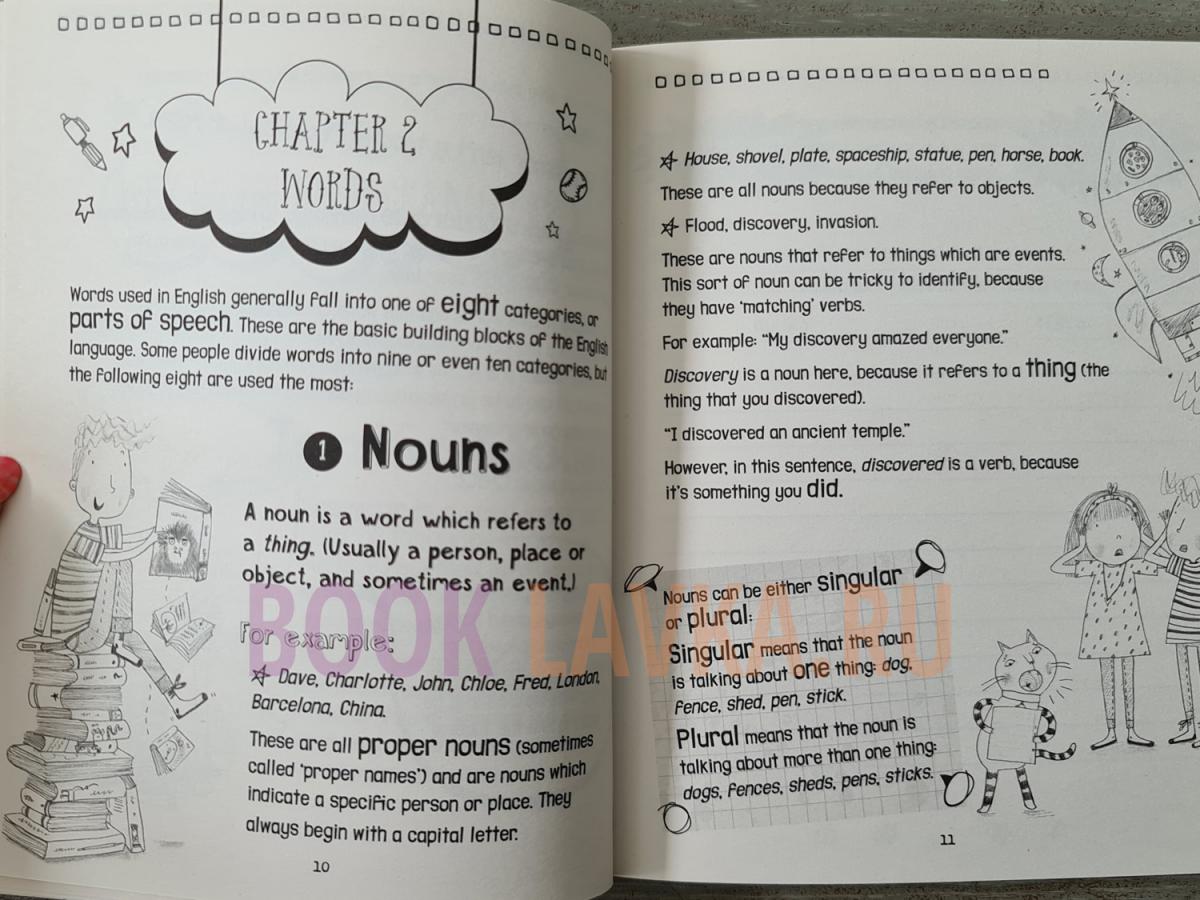 CHAPTER 2
WORDS
Words used in English generally fall into one of eight categories, or
parts of speech. These are the basic building blocks of the English
language. Some people divide words into nine or even ten categories, but
the following eight are used the most:
1 Nouns
A noun is a word which refers to
a thing. (Usually a person, place or
object, and sometimes an event.)
For example:
Dave, Charlotte, John, Chloe, Fred, London,
Barcelona, China.
These are all proper nouns (sometimes
called ‘proper names’) and are nouns which
indicate a specific person or place. They
always begin with a capital letter.
10
House, shovel, plate, spaceship, statue, pen, horse, book.
These are all nouns because they refer to objects.
Flood, discovery, invasion.
These are nouns that refer to things which are events.
This sort of noun can be tricky to identify, because
they have ‘matching’ verbs.
For example: “My discovery amazed everyone.”
Discovery is a noun here, because it refers to a thing (the
thing that you discovered).
“I discovered an ancient temple.”
However, in this sentence, discovered is a verb, because
it’s something you did.
Nouns can be either singular
or plural:
Singular means that the noun
is talking about one thing: dog,
fence, shed, pen, stick.
Plural means that the noun is
talking about more than one thing:
dogs, fences, sheds, pens, sticks.
11
BOOK LAVKA.RU